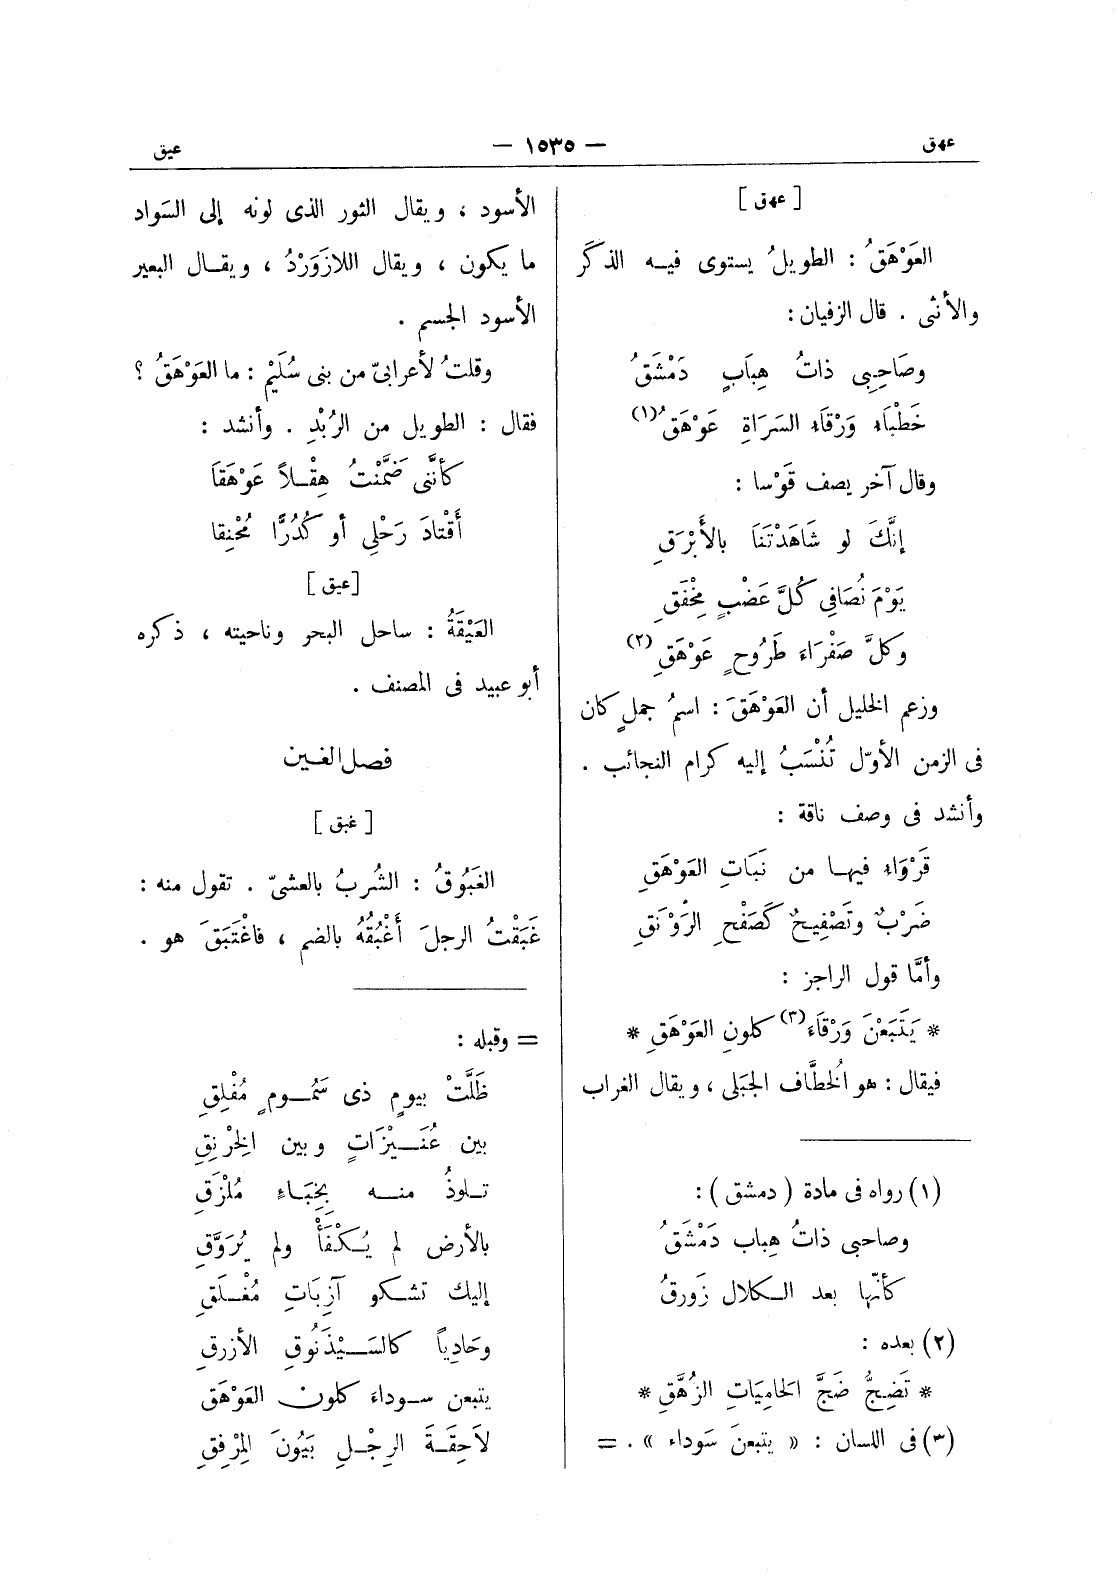 عهق
— ١٥٣٥ —
عيق
[ عهق ]
العَوْهَقُ : الطويلُ يستوى فيه الذكَر
والأنثى . قال الزفيان :
وصَاحِبِى ذاتُ هِبَابٍ دَمْشَقُ
خَطْبَاء وَرْقَاء السَرَاةِ عَوْهَقُ (١)
وقال آخر يصف قَوْسا :
إنَّكَ لو شَاهَدْتَنَا بالأَبْرَقِ
يَوْمَ نُصَافِى كُلَّ عَضْبٍ مِخْفَقِ
وَكلَّ صَفْرَاءَ طَرُوحٍ عَوْهَقِ (٢)
وزعم الخليل أن العَوْهَقَ : اسمُ جملٍ كان
فى الزمن الأوّل تُنْسَبُ إليه كرام النجائب .
وأنشد فى وصف ناقة :
قَرْوَاء فيها من نَبَاتِ العَوْهَقِ
ضَرْبٌ وتَصْفِيحٌ كَصَفْحِ الرَوْنَقِ
وأمَّا قول الراجز :
* يَتَبَعْنَ وَرْقَاء (٣) كلونِ العَوْهَقِ *
فيقال : هو الخُطَّاف الجبَلى ، ويقال الغراب
(١) رواه فى مادة ( دمشق ) :
وصاحبى ذاتُ هِباب دَمْشَقُ
كأنّها بعد الكلال زَورقُ
(٢) بعده :
* تَضِجُّ ضَجَّ الحامِيَاتِ الزُهَّقِ *
(٣) فى اللسان : « يتبعنَ سَوداء » . =
الأسود ، ويقال الثور الذى لونه إلى السَواد
ما يكون ، ويقال اللازَوَرْدُ ، ويقال البعير
الأسود الجسم .
وقلتُ لأعرابىّ من بنى سُلَيْم : ما العَوْهَقُ ؟
فقال : الطويل من الرُبْدِ . وأنشد :
كأنَّنى ضَمَّنْتُ هِقْلاً عَوْهَقَا
أَقْتادَ رَحْلِى أو كُدُرًّا مُحْنِقا
[عيق ]
العَيْقَةُ : ساحل البحر وناحيته ، ذكره
أبو عبيد فى المصنف .
فصل الغين
[ غبق ]
الغَبُوقُ : الشُربُ بالعشىّ . تقول منه :
غَبَقْتُ الرجلَ أَغْبُقُهُ بالضم ، فاغْتَبَقَ هو .
= وقبله :
ظَلَّتْ بيومٍ ذى سَمُومٍ مُفْلِقِ
بين عُنَيْزَاتٍ وبين الخِرْنِقِ
تلوذُ منه بِخِبَاءٍ مُلْزَقِ
بالأرض لم يُكْفَأْ ولم يُرَوَّقِ
إليك تشكو آزِبَاتِ مُغْلَقِ
وحَادِياً كالسَيْذَنُوقِ الأزرقِ
يتبعن سوداءَ كلون العَوْهَقِ
لاَحِقَةَ الرِجْلِ بَيُونَ المِرْفِقِ